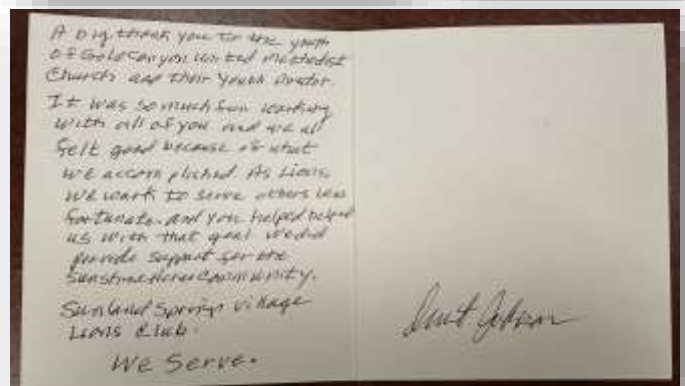 A big thank you to the youth
of Gold Canyon United Methodist
Church and their youth director.
It was so much fun working
with all of you and we all
felt good because of what
we accomplished. As Lions
we work to serve others less
fortunate and you helped
us with that goal. We did
provide support for the
community.
Sunland Springs Village
Lions Club.
We Serve.